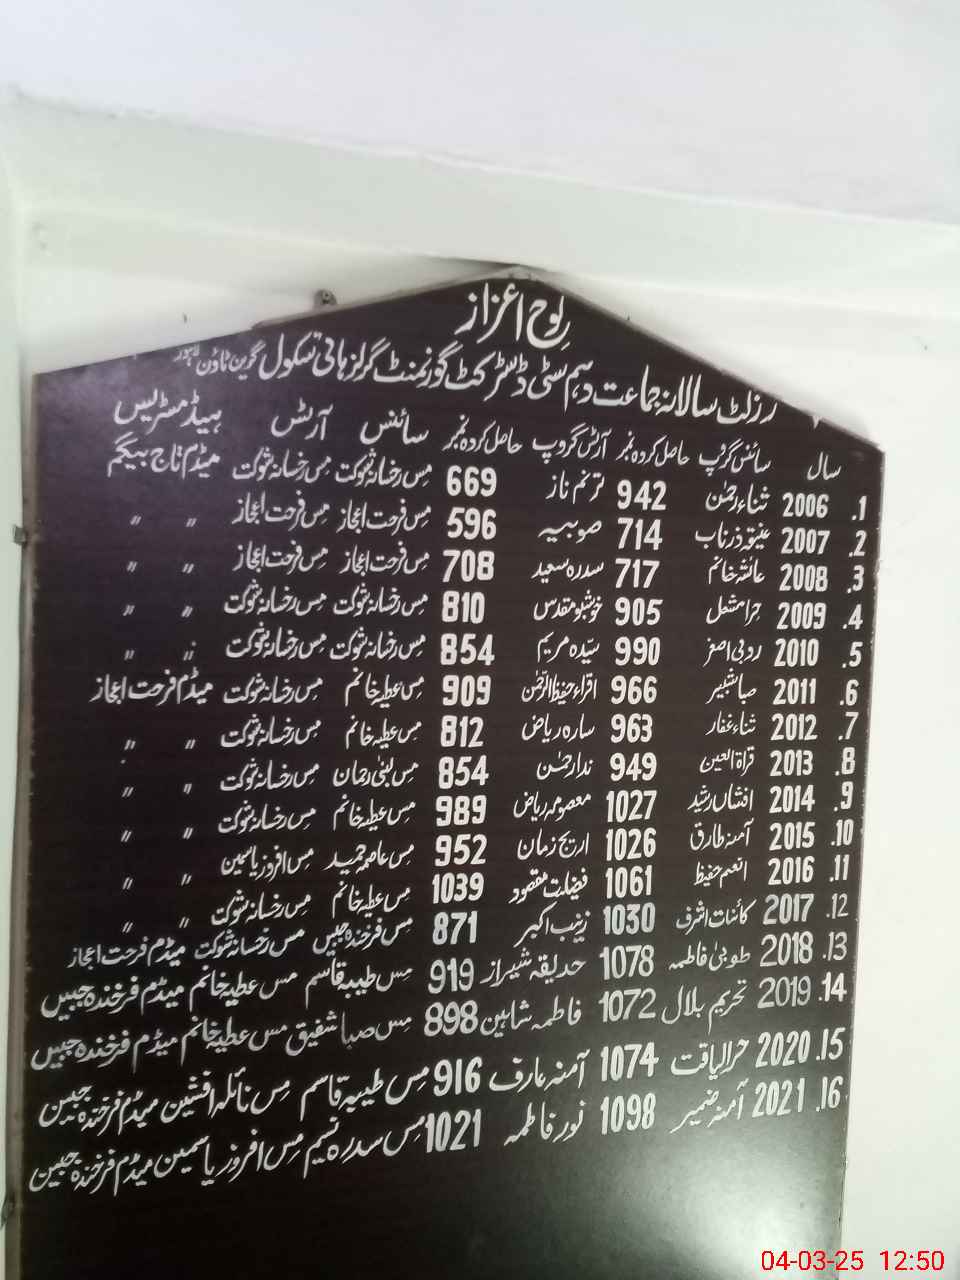 لوح اعزاز
رزلٹ سالانہ جماعت دہم سٹی ڈسٹرکٹ گورنمنٹ گرلز ہائی سکول گرین ٹاؤن لاہور
سال سائنس گروپ حاصل کردہ نمبر آرٹس گروپ حاصل کردہ نمبر سائنس آرٹس ہیڈ مسٹریس
1. 2006 ثناء رحمٰن 942 ترنم ناز 669 مس رخسانہ شوکت مس رخسانہ شوکت میڈم تاج بیگم
2. 2007 عنیقہ زرناب 714 صوبیہ 596 مس فرحت اعجاز مس فرحت اعجاز " "
3. 2008 عائشہ خانم 717 سدرہ سعید 708 مس فرحت اعجاز مس فرحت اعجاز " "
4. 2009 حرا مشعل 905 خوشبو مقدس 810 مس رخسانہ شوکت مس رخسانہ شوکت " "
5. 2010 روبی اصغر 990 سیّدہ مریم 854 مس رخسانہ شوکت مس رخسانہ شوکت " "
6. 2011 صبا شبیر 966 اقراء حفیظ الرحمٰن 909 مس عطیہ خانم مس رخسانہ شوکت میڈم فرحت اعجاز
7. 2012 ثناء غفار 963 سارہ ریاض 812 مس عطیہ خانم مس رخسانہ شوکت " "
8. 2013 قراۃ العین 949 ندا رحمٰن 854 مس لبنیٰ رحمان مس رخسانہ شوکت " "
9. 2014 افشاں رشید 1027 معصومہ ریاض 989 مس عطیہ خانم مس رخسانہ شوکت " "
10. 2015 آمنہ طارق 1026 اریج زمان 952 مس عاصمہ حمید مس افروز یاسمین " "
11. 2016 انعم حفیظ 1061 فضیلت مقصود 1039 مس عطیہ خانم مس رخسانہ شوکت " "
12. 2017 کائنات اشرف 1030 زینب اکبر 871 مس فرخندہ جبیں مس رخسانہ شوکت میڈم فرحت اعجاز
13. 2018 طوبیٰ فاطمہ 1078 حدیقہ شیراز 919 مس طیبہ قاسم مس عطیہ خانم میڈم فرخندہ جبیں
14. 2019 تحریم بلال 1072 فاطمہ شاہین 898 مس صبا شفیق مس عطیہ خانم میڈم فرخندہ جبیں
15. 2020 حرا لیاقت 1074 آمنہ عارف 916 مس طیبہ قاسم مس نائلہ افشین میڈم فرخندہ جبین
16. 2021 آمنہ ضمیر 1098 نور فاطمہ 1021 مس سدرہ نسیم مس افروز یاسمین میڈم فرخندہ جبین
04-03-25 12:50